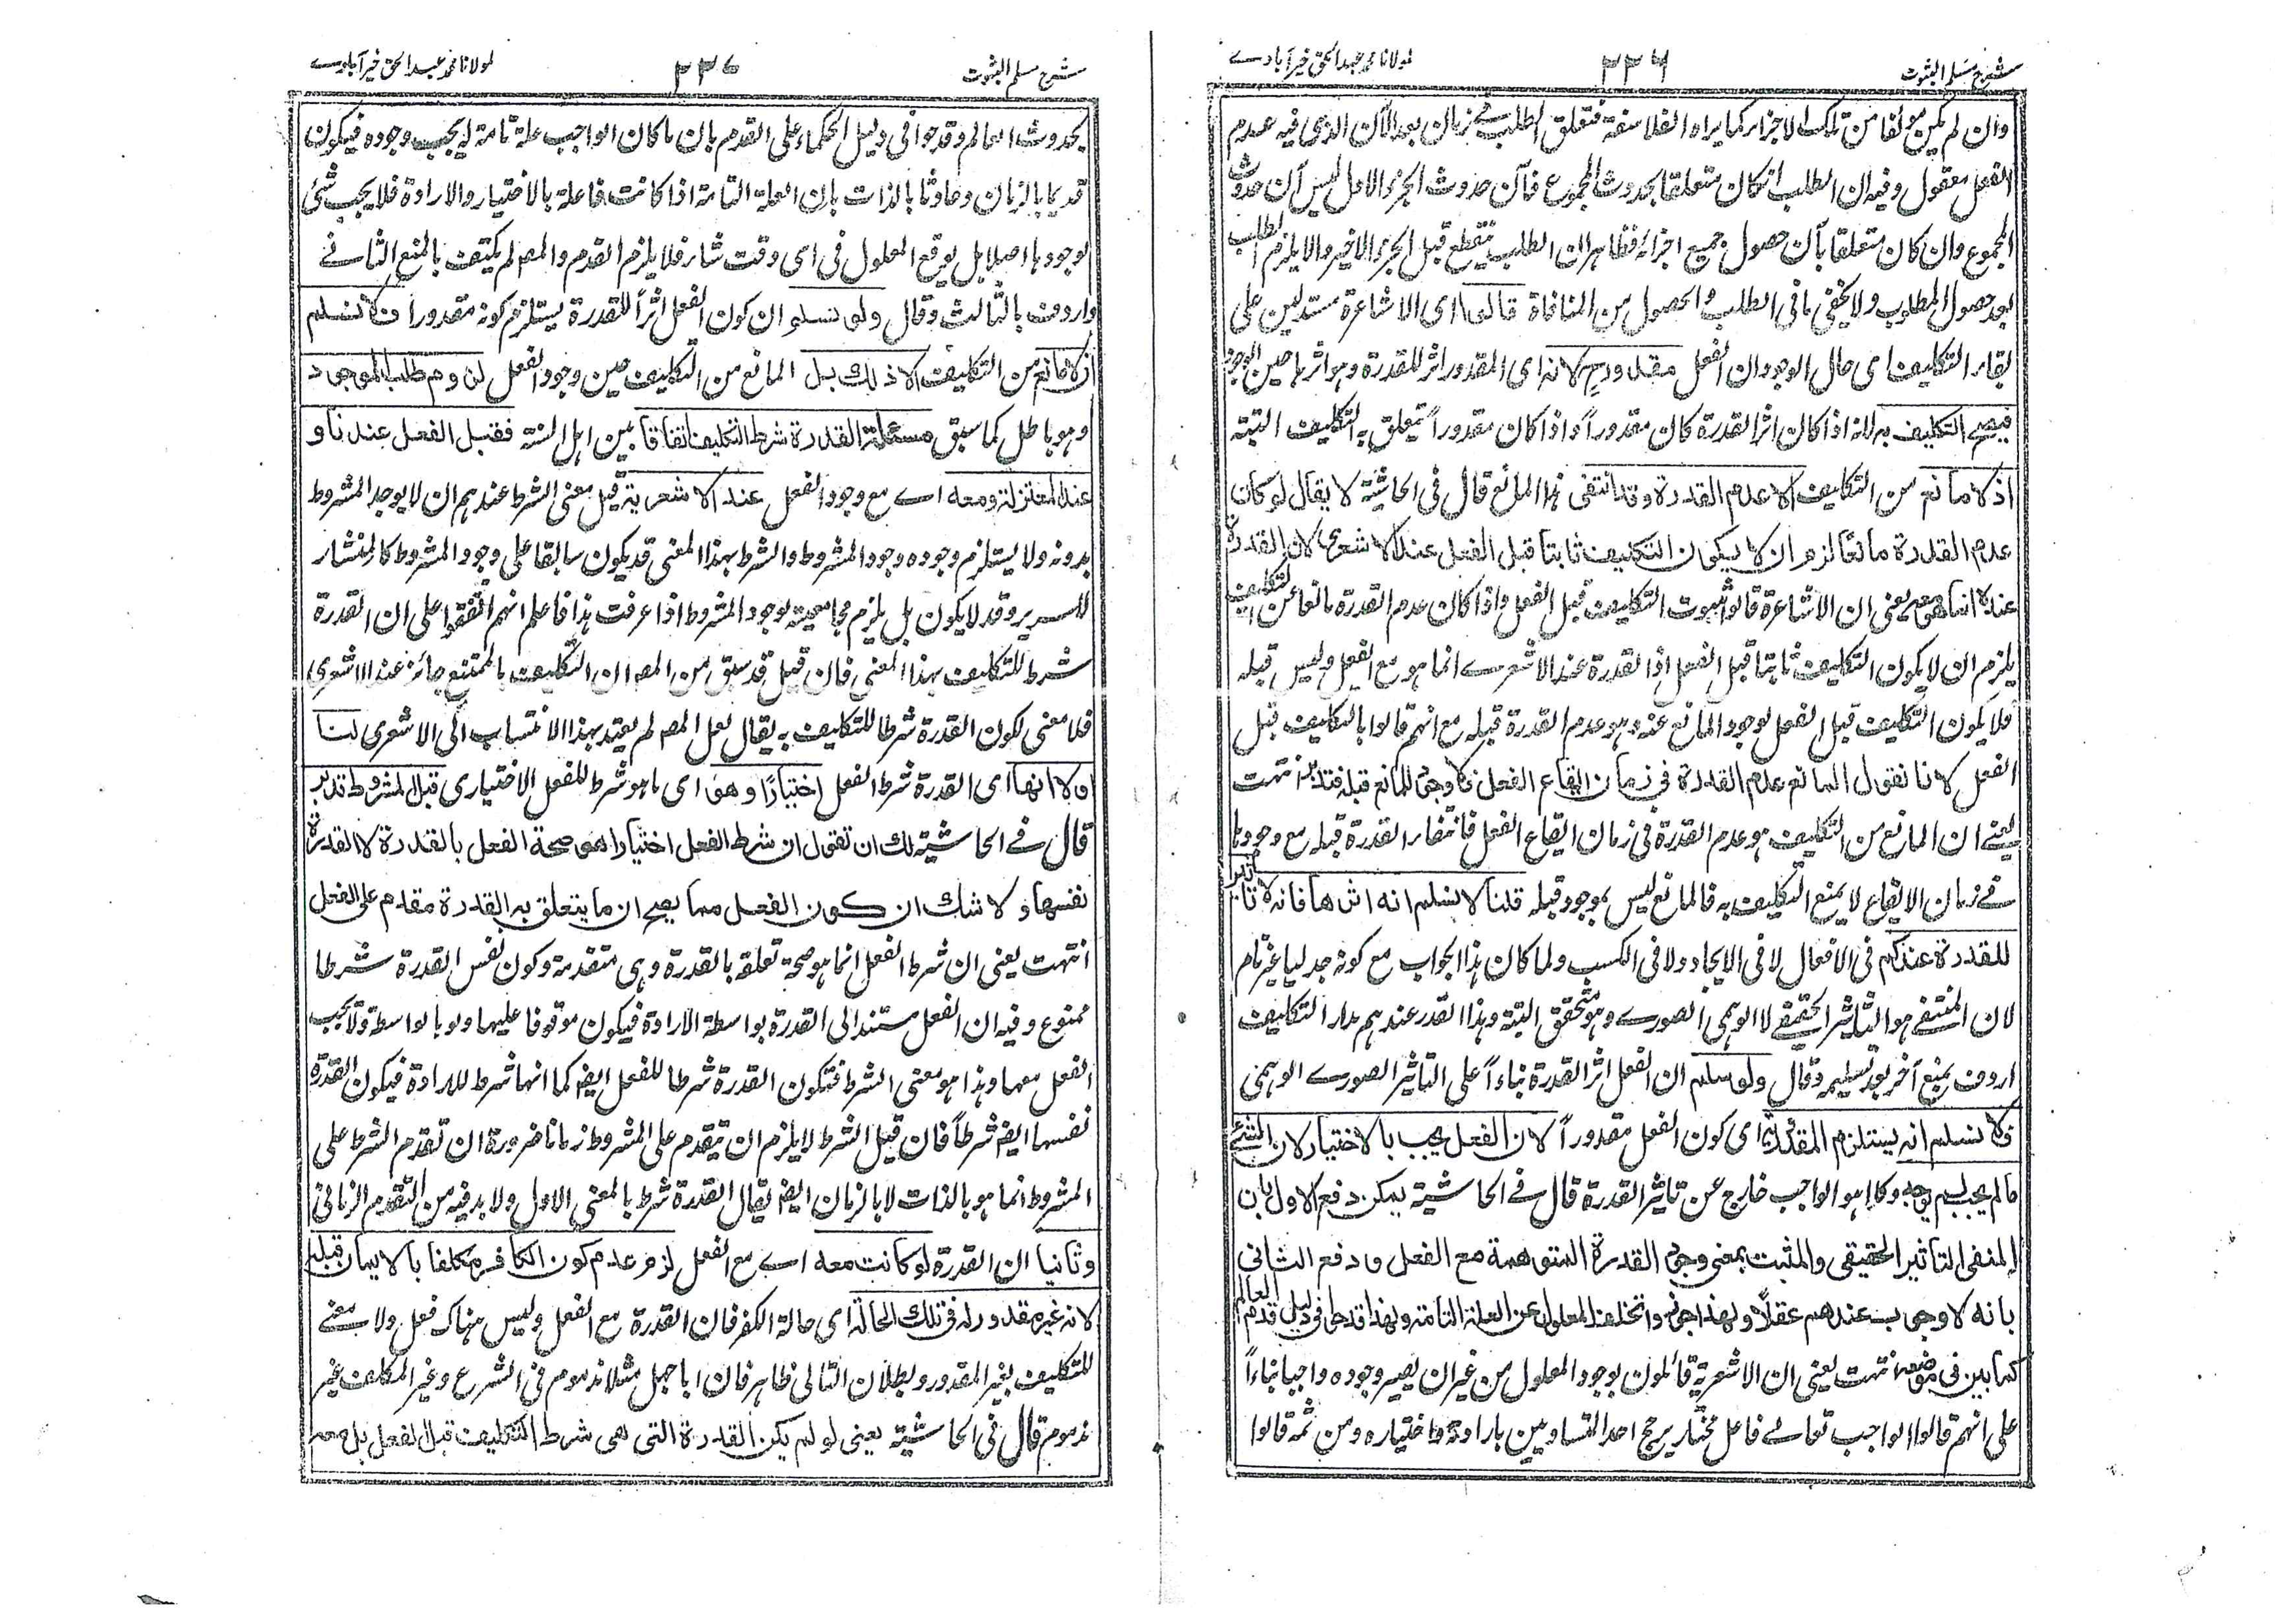 شرح مسلم الثبوت
٢٣٦
مولانا محمد عبد الحق خیرآبادے
وان لم یکن مؤلفا من تلک الاجزاء کما یراہ الفلاسفة فتعلق الطلب فے زمان بعد الآن الذی فیه عدم
الفعل معقول وفیه ان الطلب انکان متعلقا بحدوث المجموع فآن حدوث الجزء الاول لیس آن حدوث
المجموع وان کان متعلقا بآن حصول جمیع اجزائه فظاهر ان الطلب ینقطع قبل الجزء الاخیر والا یلزم الطلب
بعد حصول المطلوب ولا یخفی ما فی الطلب والحصول من المنافاة قالوا ای الاشاعرة مستدلین علی
بقاء التکلیف ای حال الوجود ان الفعل مقدور ح لانه ای المقدور اثر للقدرة وهو اثرها حین الوجود
فیصح التکلیف به لانه اذا کان اثر القدرة کان مقدوراً واذا کان مقدوراً یتعلق به التکلیف البتة
اذ لا مانع من التکلیف الا عدم القدرة وقد انتفی هذا المانع قال فی الحاشیة لا یقال لو کان
عدم القدرة مانعا لزم ان لا یکون التکلیف ثابتا قبل الفعل عند الاشعری لان القدرة
عنده انما هی معه یعنی ان الاشاعرة قالوا بثبوت التکلیف قبل الفعل واذا کان عدم القدرة مانعا عن التکلیف
یلزم ان لا یکون التکلیف ثابتا قبل الفعل اذ القدرة عند الاشعرے انما هو مع الفعل ولیس قبله
فلا یکون التکلیف قبل الفعل لوجود المانع عنه وهو عدم القدرة قبله مع انهم قالوا بالتکلیف قبل
الفعل لانا نقول المانع عدم القدرة فی زمان ایقاع الفعل فلا وجود للمانع قبله فتدبر انتهت
یعنے ان المانع من التکلیف هو عدم القدرة فی زمان ایقاع الفعل فانتفاء القدرة قبله مع وجودها
فے زمان الایقاع لا یمنع التکلیف به فالمانع لیس بموجود قبله قلنا لا نسلم انه اثرها فانه لا تاثیر
للقدرة عندکم فی الافعال لا فی الایجاد ولا فی الکسب ولما کان هذا الجواب مع کونه جدلیا غیر تام
لان المنتفے هو التاثیر الحقیقے لا الوهمی الصورے وهو متحقق البتة وهذا القدر عندهم مدار التکلیف
اردف بمنع آخر بعد تسلیمه وقال ولو سلم ان الفعل اثر القدرة بناءاً علی التاثیر الصورے الوهمی
فلا نسلم انه یستلزم المقدوریة ای کون الفعل مقدوراً لان الفعل یجب بالاختیار لان الشئ
ما لم یجب لم یوجد وکلما هو الواجب خارج عن تاثیر القدرة قال فے الحاشیة یمکن دفع الاول بان
المنفی التاثیر الحقیقی والمثبت بمعنی وجود القدرة المتوهمة مع الفعل ودفع الثانی
بانه لا وجوب عندهم عقلاً ولهذا جوزوا تخلف المعلول عن العلة التامة ولهذا قدحوا فی دلیل قدم العالم
کما بین فی موضعه انتهت یعنی ان الاشعریة قائلون بوجود المعلول من غیر ان یصیر وجوده واجبا بناءاً
علی انهم قالوا الواجب تعالے فاعل مختار یرجح احد المتساویین بارادته واختیاره ومن ثمه قالوا
شرح مسلم الثبوت
٢٣٧
مولانا محمد عبد الحق خیرآبادے
بحدوث العالم وقدحوا فی دلیل الحکماء علی القدم بان ما کان الواجب علة تامة له یجب وجوده فیکون
قدیما بالزمان وحادثا بالذات بان العلة التامة اذا کانت فاعلة بالاختیار والارادة فلا یجب شئ
لوجودها اصلا بل یوقع المعلول فی ای وقت شاء فلا یلزم القدم والمص لم یکتف بالمنع الثانے
واردف بالثالث وقال ولو نسلم ان کون الفعل اثراً للقدرة یستلزم کونه مقدوراً فلا نسلم
ان لا مانع من التکلیف الا ذلک بل المانع من التکلیف حین وجود الفعل لزوم طلب الموجود
وهو باطل کما سبق مسئلة القدرة شرط التکلیف اتفاقا بین اهل السنة فقبل الفعل عندنا و
عند المعتزلة ومعه اے مع وجود الفعل عند الاشعریة قیل معنی الشرط عندهم ان لا یوجد المشروط
بدونه ولا یستلزم وجوده وجود المشروط والشرط بهذا المعنی قد یکون سابقا علی وجود المشروط کالمنشار
للسریر وقد لا یکون بل یلزم مجامعیته لوجود المشروط اذا عرفت هذا فاعلم انهم اتفقوا علی ان القدرة
شرط للتکلیف بهذا المعنی فان قیل قد سبق من المص ان التکلیف بالممتنع جائز عند الاشعری
فلا معنی لکون القدرة شرطا للتکلیف به یقال لعل المص لم یعتد بهذا الانتساب الی الاشعری لنا
اولا انها ای القدرة شرط الفعل اختیارًا وهو ای ما هو شرط للفعل الاختیاری قبل المشروط تدبر
قال فے الحاشیة لک ان تقول ان شرط الفعل اختیارا هو صحة الفعل بالقدرة لا القدرة
نفسها ولا شک ان کون الفعل مما یصح ان ما یتعلق به القدرة مقدم علی الفعل
انتهت یعنی ان شرط الفعل انما هو صحة تعلقه بالقدرة وهی متقدمة وکون نفس القدرة شرطا
ممنوع وفیه ان الفعل مستند الی القدرة بواسطة الارادة فیکون موقوفا علیها ولو بالواسطة ولا یجب
الفعل معها وهذا هو معنی الشرط فتکون القدرة شرطا للفعل ایضا کما انها شرط للارادة فیکون القدرة
نفسها ایضا شرطاً فان قیل الشرط لا یلزم ان یتقدم علی المشروط زمانا ضرورة ان تقدم الشرط علی
المشروط انما هو بالذات لا بالزمان ایضا یقال القدرة شرط بالمعنی الاول ولا بد فیه من التقدم الزمانی
وثانیا ان القدرة لو کانت معه اے مع الفعل لزم عدم کون الکافر مکلفا بالایمان قبله
لانه غیر مقدور له فی تلک الحالة ای حالة الکفر فان القدرة مع الفعل ولیس هناک فعل ولا معنے
للتکلیف بغیر المقدور وبطلان التالی ظاهر فان ابا جهل مثلا مذموم فی الشرع وغیر المکلف غیر
مذموم قال فی الحاشیة یعنی لو لم یکن القدرة التی هی شرط التکلیف قبل الفعل بل معه